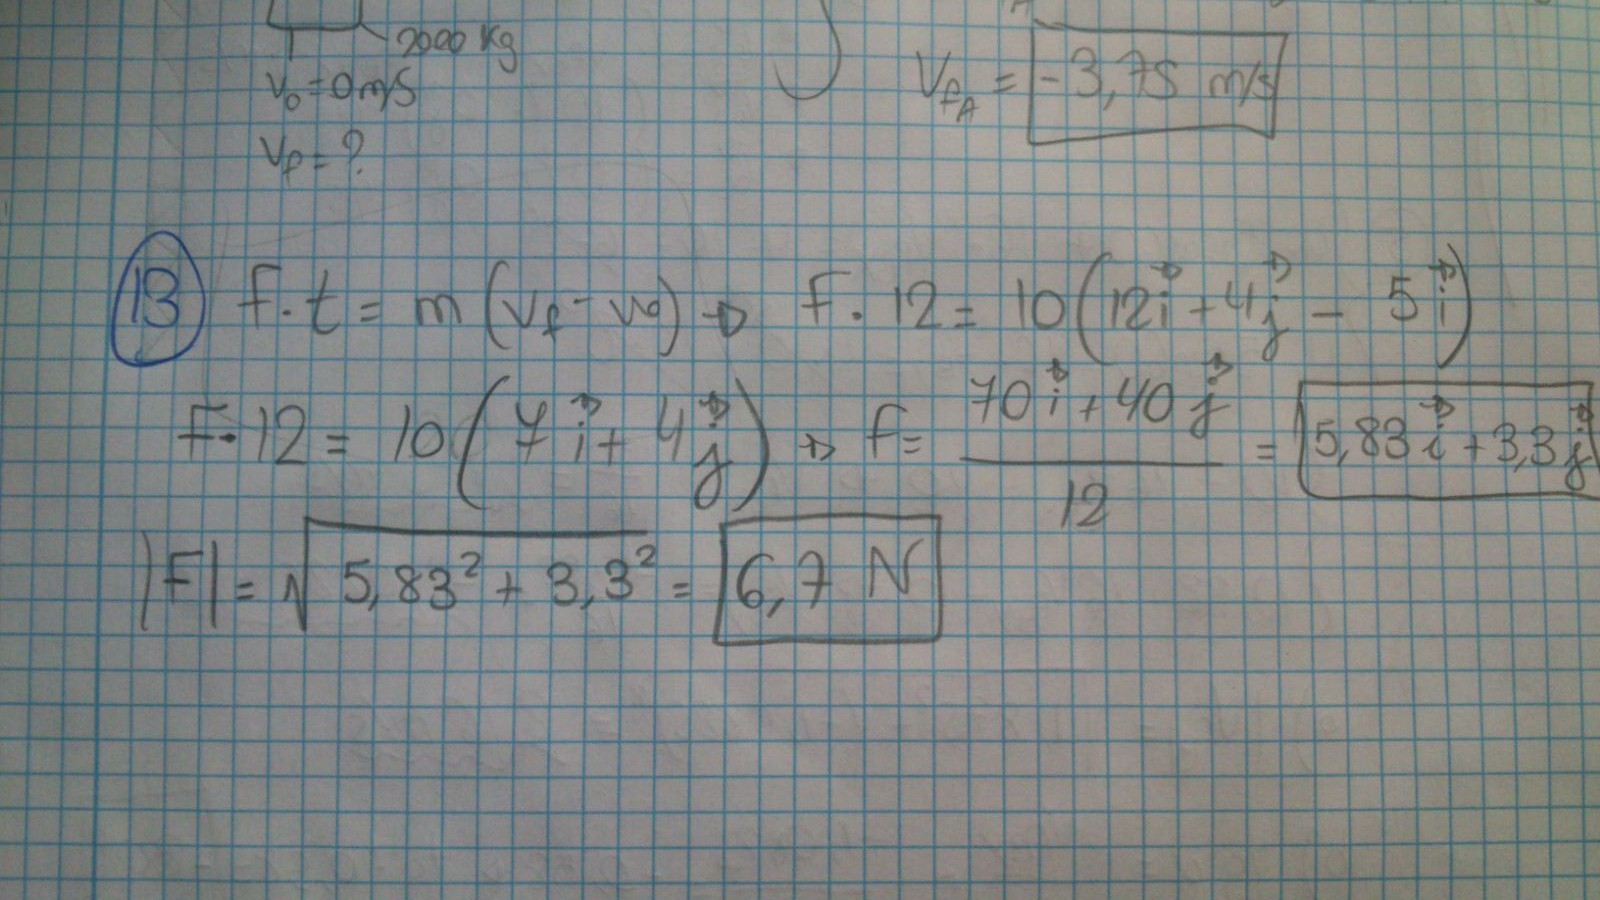 2000 Kg
V₀ = 0 m/s
V_f = ?
V_fA = -3,75 m/s
13 F·t = m (V_f - V₀) → F · 12 = 10 (12i⃗ + 4j⃗ - 5i⃗)
F·12 = 10 (7i⃗ + 4j⃗) → F = (70i⃗ + 40j⃗)/12 = 5,83i⃗ + 3,3j⃗
|F| = √(5,83² + 3,3²) = 6,7 N